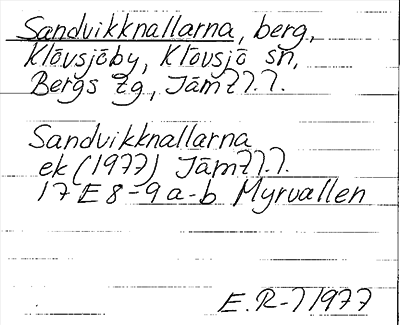 Sandvikknallarna, berg,
Klövsjöby, Klövsjö sn,
Bergs tg, Jämtl.l.
Sandvikknallarna
ek (1977) Jämtl.l.
17 E 8-9 a-b Myrvallen
E.R-l 1977